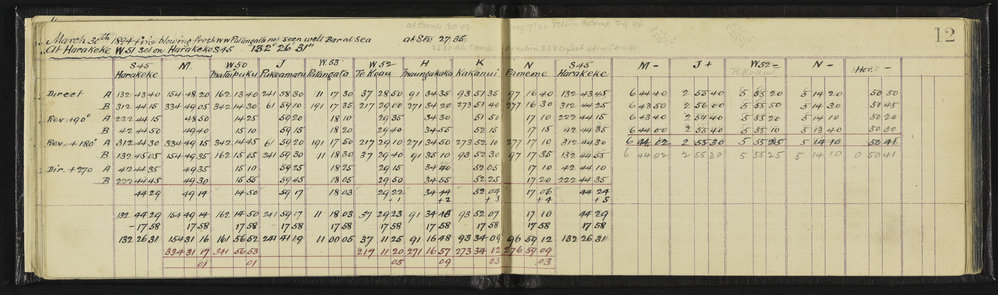 12
March 30th 1894 fine blowing fresh WW Patangata not seen well Bar at Sea
At Harakeke W51 Set on Harakeke S45 132° 26' 31"
S45 M W50 J W53 W52 H K N S45 M - J + W52 - N -
Harakeke Mataipuku Pukeamaru Patangata Te Koau Maungakaka Kakanui Pameme Harakeke Te Koau
Direct A 132 43 40 154 48 20 162 13 40 241 58 30 11 17 30 37 28 50 91 34 35 93 51 35 97 16 40 132 43 45 6 44 40 2 55 40 5 55 20 5 14 20 50 50
B 312 44 15 334 49 05 342 14 30 61 59 10 191 17 35 217 29 00 271 34 20 273 51 40 277 16 30 312 44 25 6 43 50 2 56 00 5 55 50 5 14 30 50 45
Rev. 190° A 222 44 15 48 50 14 25 59 20 18 10 29 35 34 30 51 50 17 10 222 44 15 6 43 40 2 54 40 5 55 20 5 14 10 50 20
B 42 44 50 49 40 15 10 59 15 18 20 29 40 34 55 52 15 17 15 42 44 35 6 44 00 2 55 40 5 55 10 5 13 40 50 50
Rev. + 180° A 312 44 30 334 49 15 342 14 45 61 59 20 191 17 50 217 29 10 271 34 50 273 52 10 277 17 10 312 44 30 6 44 02 2 55 30 5 55 25 5 14 10 50 41
B 132 45 05 154 49 35 162 15 05 241 59 30 11 18 30 37 29 40 91 35 10 93 52 30 97 17 35 132 44 55 6 44 02 2 55 30 5 55 25 5 14 10 0 50 41
Dir. + 270 A 42 44 35 49 35 15 10 59 25 18 25 29 15 34 40 52 05 17 20 42 44 10
B 222 44 45 49 30 15 55 59 45 18 05 29 50 34 55 52 25 17 20 222 44 35
44 29 49 14 14 50 59 17 18 03 29 22 34 44 52 04 17 06 44 24
+1 +2 +3 +4 +5
132 44 29 154 49 14 162 14 50 241 59 17 11 18 03 37 29 23 91 34 46 93 52 07 17 10 44 29
- 17 58 17 58 17 58 17 58 17 58 17 58 17 58 17 58 17 58 17 58
132 26 31 154 31 16 161 56 52 241 41 19 11 00 05 37 11 25 91 16 48 93 34 09 96 59 12 132 26 31
334 31 17 341 56 53 217 11 20 271 16 57 273 34 12 276 59 09
01 01 05 09 03 03